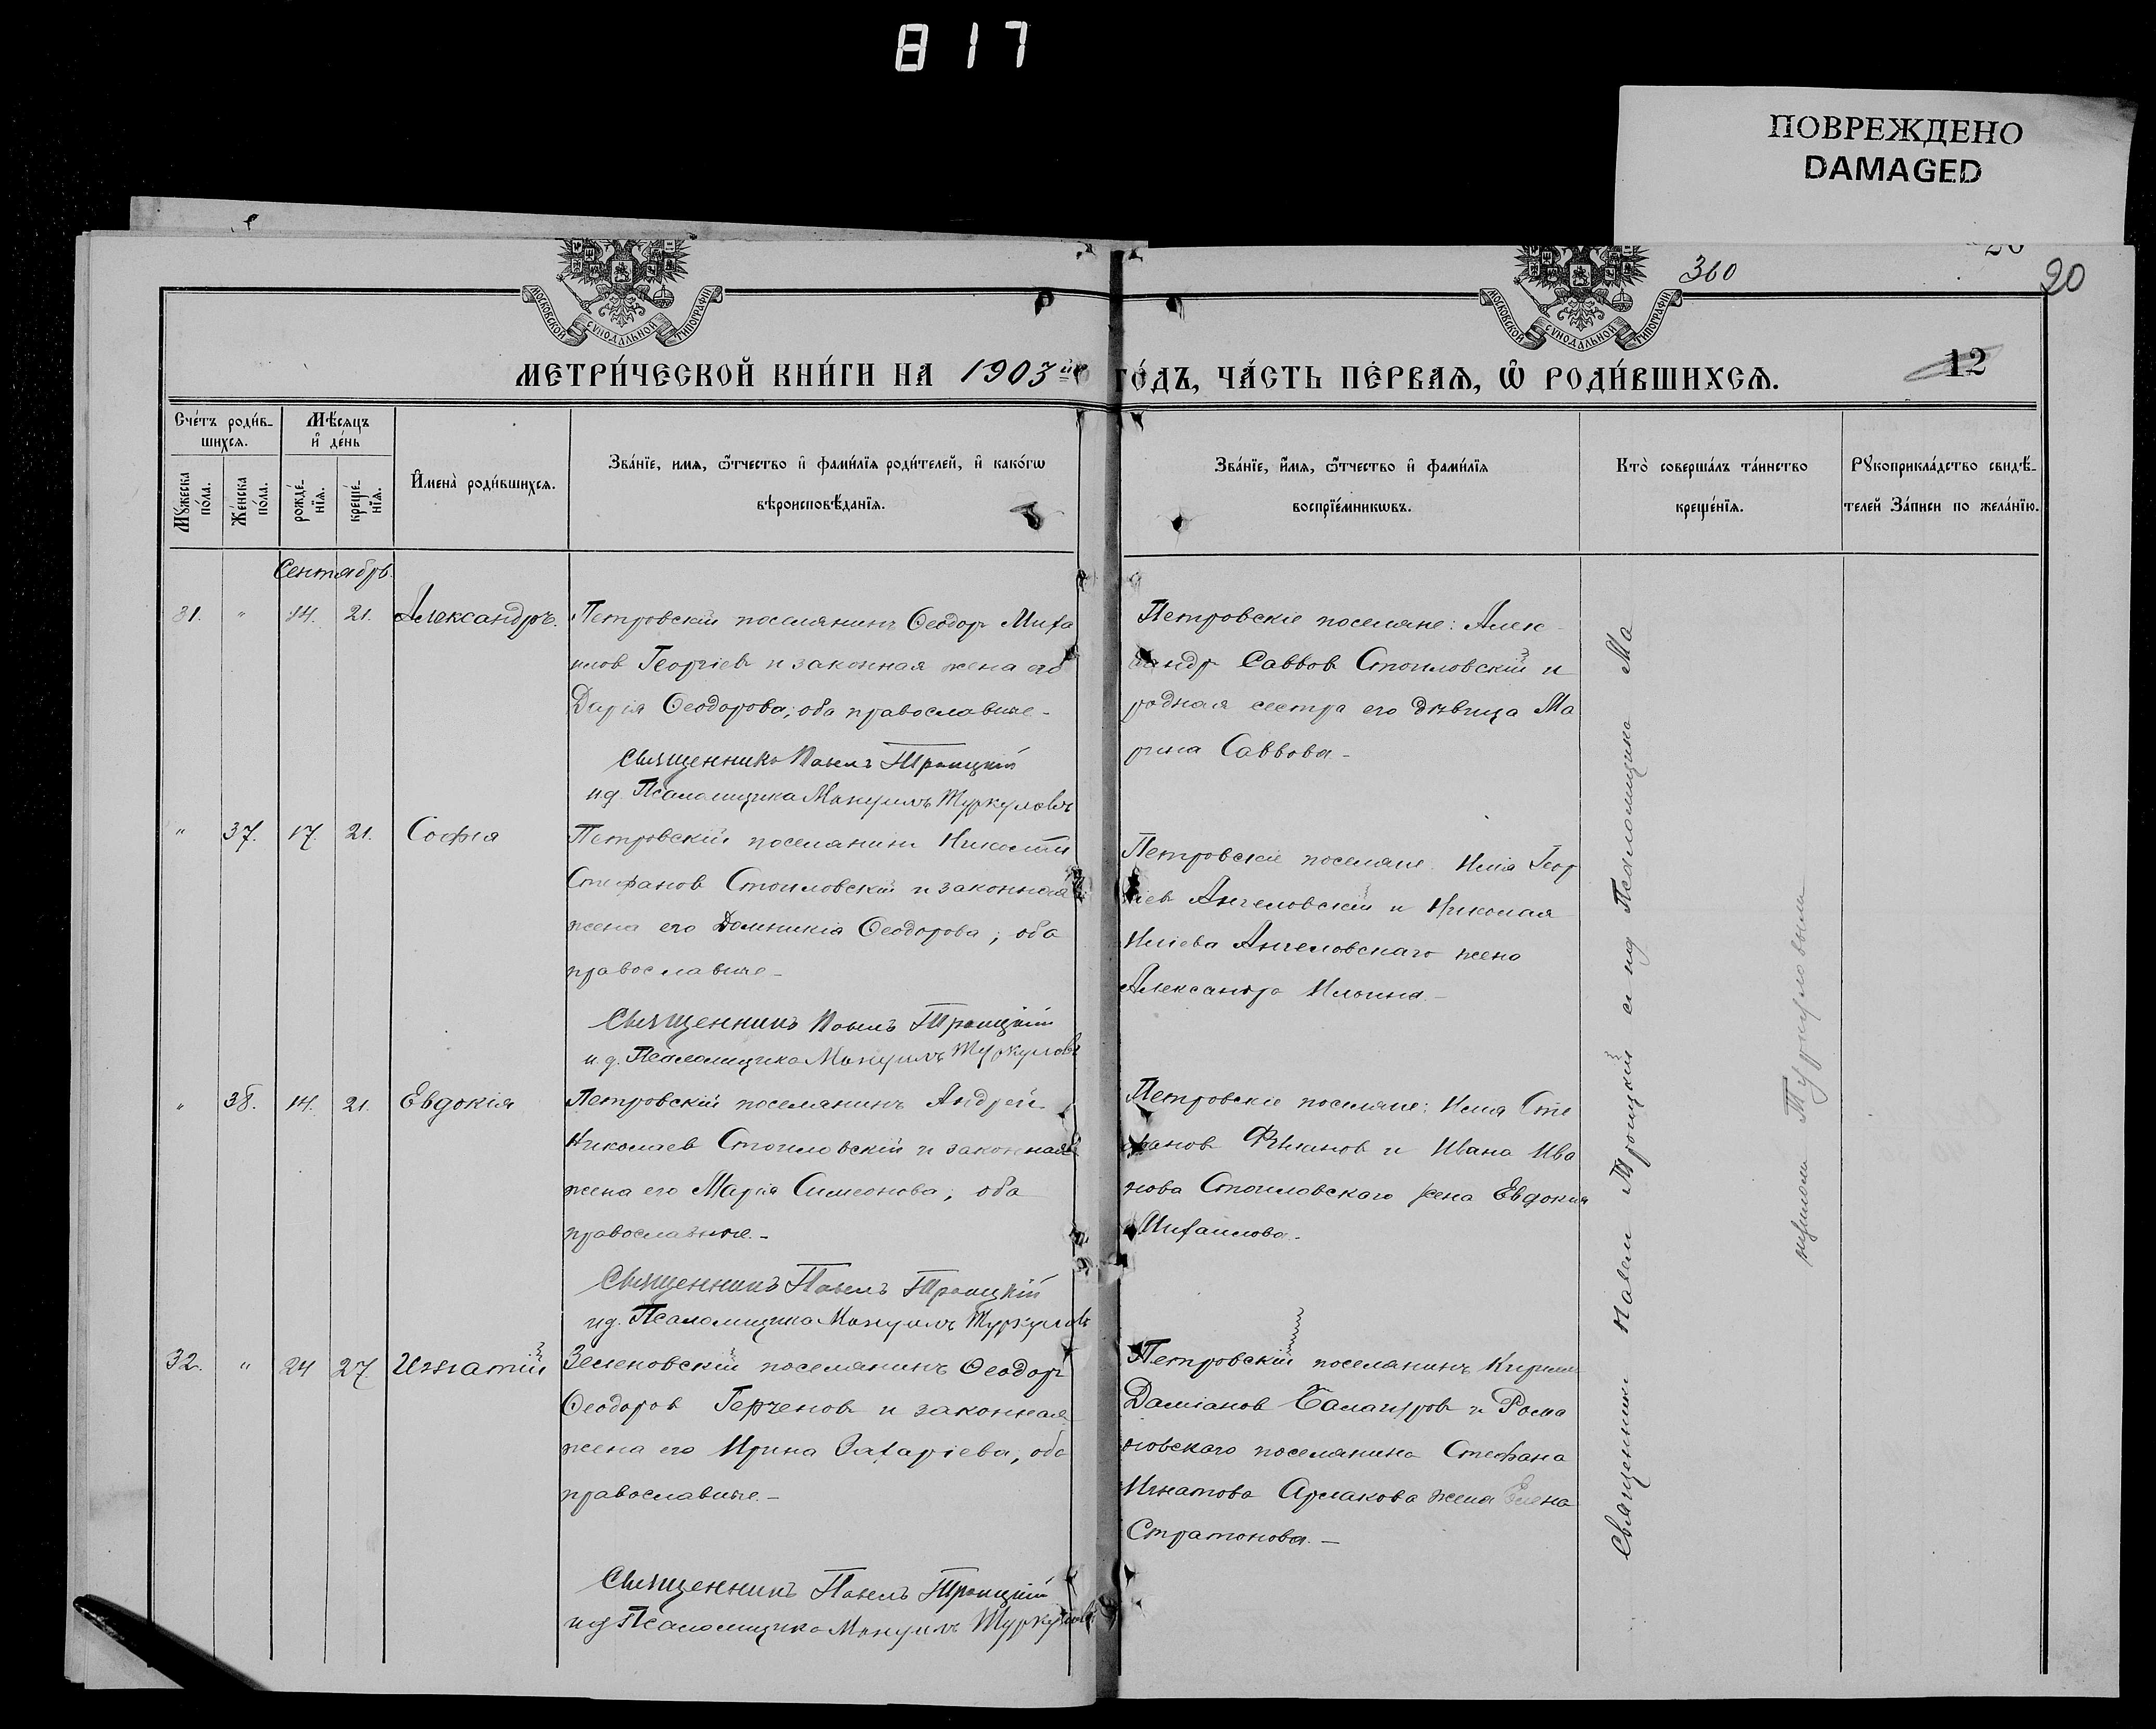 817
ПОВРЕЖДЕНО
DAMAGED
МОСКОВСКОЙ СѴНОДАЛЬНОЙ ТИПОГРАФІИ
МОСКОВСКОЙ СѴНОДАЛЬНОЙ ТИПОГРАФІИ
360
20
20
МЕТРИ́ЧЕСКОЙ КНИ́ГИ НА 1903 ГО́ДЪ, ЧА́СТЬ ПЕ́РВАѦ, Ѡ҆ РОДИ́ВШИХСѦ.
12
Сче́тъ роди́в-
шихсѧ.
Мꙋ́жеска по́ла.
Же́нска по́ла.
Мѣ́сѧцъ
и҆ де́нь
рожде́-нїѧ.
креще́-нїѧ.
И҆мена̀ роди́вшихсѧ.
Зва́нїе, имѧ, ѻ҆́тчество и҆ фами́лїѧ роди́телей, и҆ како́гѡ
вѣроисповѣ́данїѧ.
Зва́нїе, и҆́мѧ, ѻ҆́тчество и҆ фами́лїѧ
воспрїе́мникѡвъ.
Кто̀ соверша́лъ та́инство
креще́нїѧ.
Рꙋкоприкла́дство свидѣ́-
телей За́писи по жела́нїю.
Сентябрь
31. " 14. 21. Александръ.
Петровскій поселянинъ Ѳеодоръ Миха
иловъ Георгіевъ и законная жена его
Дарія Ѳеодорова; оба православные -
Священникъ Павелъ Троицкій
и.д. Псаломщика Мануилъ Туркуловъ
Петровскіе поселяне: Алек-
сандръ Саввовъ Стоиловскій и
родная сестра его дѣвица Ма
рина Саввова -
" 37. 17. 21. Софія
Петровскій поселянинъ Николай
Стефановъ Стоиловскій и законная
жена его Домникія Ѳеодорова; оба
православные -
Священникъ Павелъ Троицкій
и.д. Псаломщика Мануилъ Туркуловъ
Петровскіе поселяне: Илія Геор
гіевъ Ангеловскій и Николая
Иліева Ангеловскаго жена
Александра Ильина -
" 38. 14. 21. Евдокія
Петровскій поселянинъ Андрей
Николаевъ Стоиловскій и законная
жена его Марія Симеонова; оба
православные. -
Священникъ Павелъ Троицкій
и.д. Псаломщика Мануилъ Туркуловъ
Петровскіе поселяне: Илія Сте
фановъ и Ивана Ива
нова Стоиловскаго жена Евдокія
Михаилова.
32. " 24 27. Игнатій
Зеленовскій поселянинъ Ѳеодоръ
Ѳеодоровъ Герченовъ и законная
жена его Ирина Захаріева, оба
православные. -
Священникъ Павелъ Троицкій
и.д. Псаломщика Мануилъ Туркуловъ
Петровскій поселянинъ Кириллъ
Даміановъ и Рома
новскаго поселянина Стефана
Игнатова Арлакова жена Елена
Стратонова. -
Священникъ Павелъ Троицкій съ и.д. Псаломщика Ма
нуиломъ Туркуловымъ